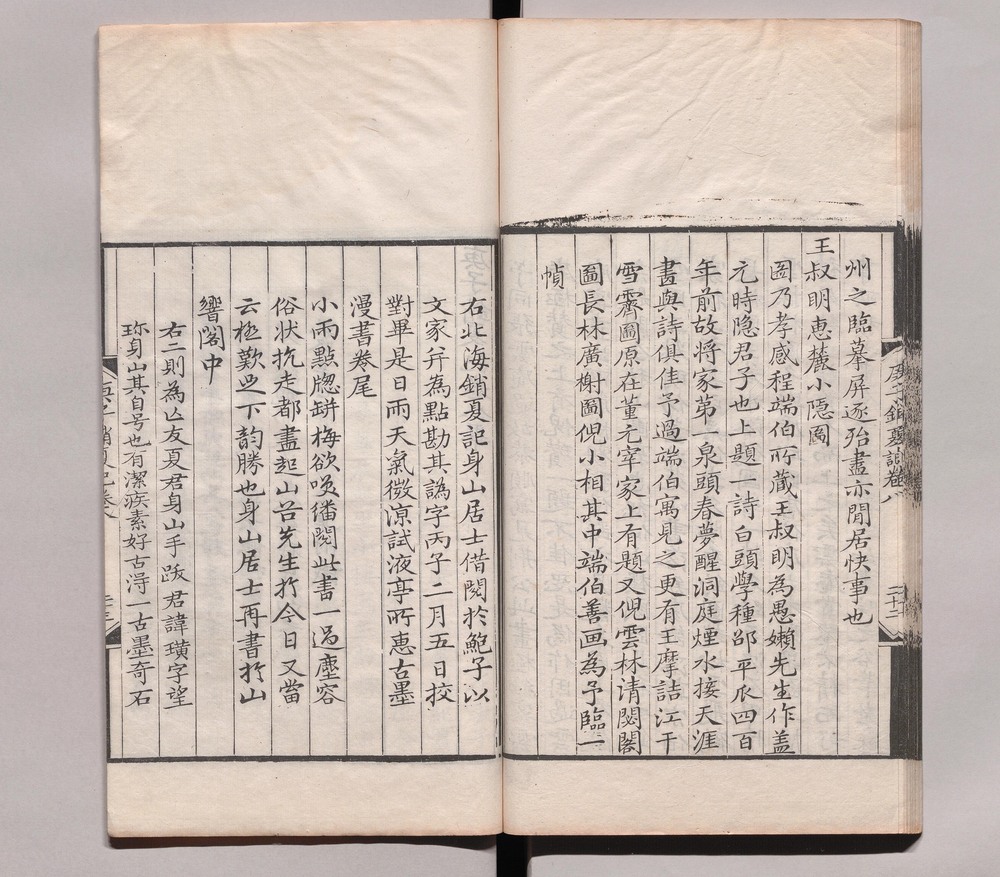 庚子銷夏記卷八
二十二
州之臨摹屏逐殆盡亦閒居快事也
王叔明惠麓小隠圖
圖乃孝感程端伯所蔵王叔明為愚嬾先生作盖
元時隐君子也上題一詩白頭學種邵平瓜四百
年前故将家第一泉頭春夢醒洞庭煙水接天涯
畫與詩俱佳予過端伯寓見之更有王摩詰江干
雪霽圖原在董元宰家上有題又倪雲林清閟閣
圖長林廣榭圖倪小相其中端伯善画為予臨一
幀
右北海銷夏記身山居士借閱於鮑子以
文家弁為點勘其譌字丙子二月五日挍
對畢是日雨天氣微涼試液亭所惠古墨
漫書卷尾
小雨點牕缾梅欲唉繙閱此書一過塵容
俗状抗走都盡起山谷先生於今日又當
云極歎之下韵勝也身山居士再書於山
響閣中
右二則為亡友夏君身山手跋君諱璜字望
珎身山其自号也有潔疾素好古淂一古墨奇石
庚子銷夏記卷八
二十三